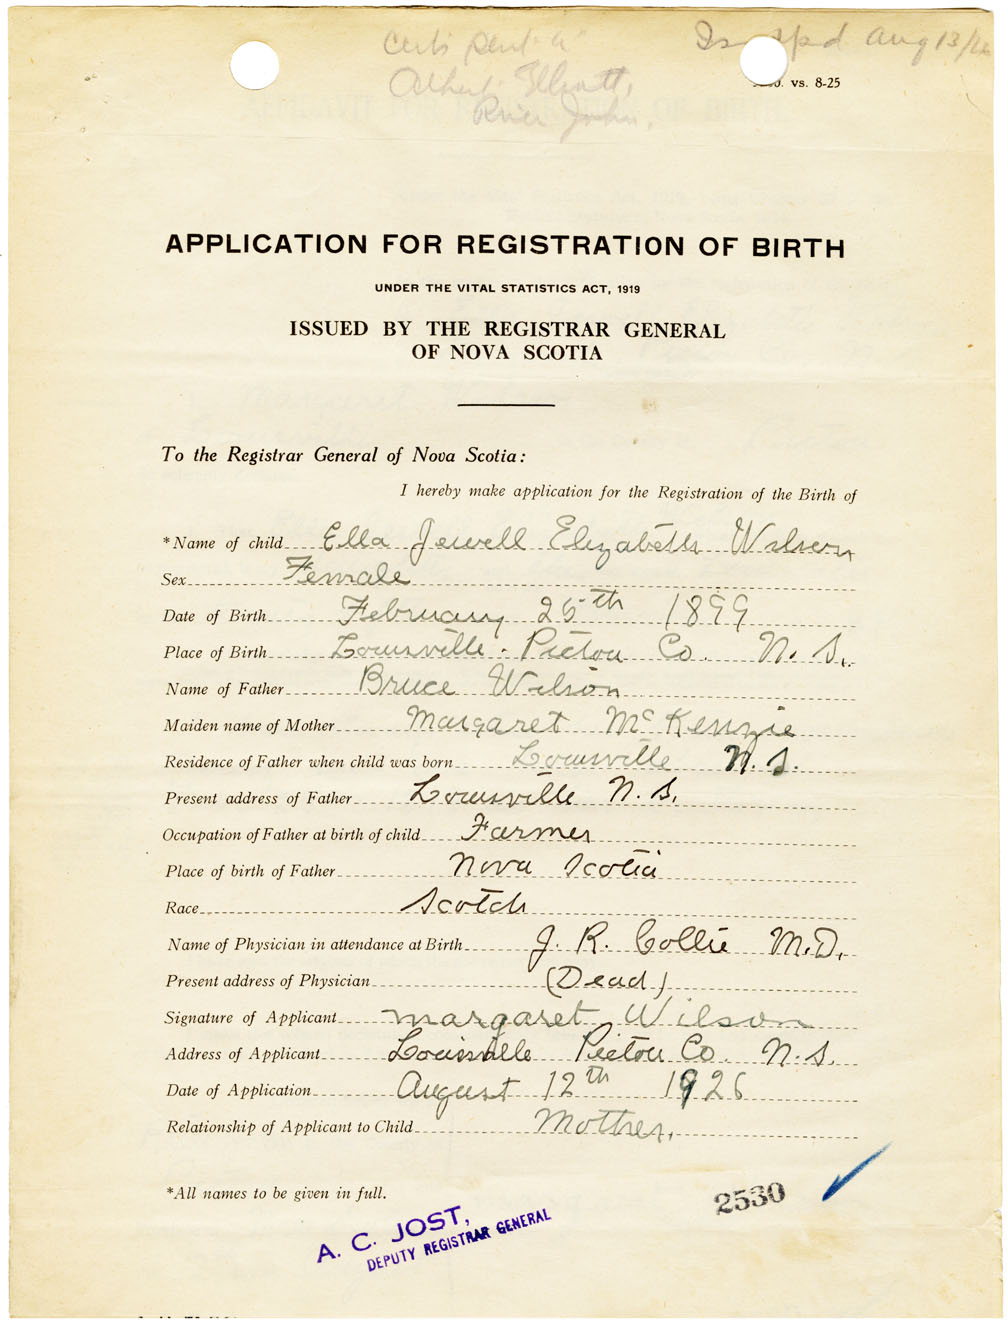 Certi Sent to Issued Aug 13/26
Albert Elliott,
River John.
vs. 8-25
APPLICATION FOR REGISTRATION OF BIRTH
UNDER THE VITAL STATISTICS ACT, 1919
ISSUED BY THE REGISTRAR GENERAL
OF NOVA SCOTIA
To the Registrar General of Nova Scotia:
I hereby make application for the Registration of the Birth of
*Name of child Ella Jewell Elizabeth Wilson
Sex Female
Date of Birth February 25th 1899
Place of Birth Louisville. Pictou Co. N. S.
Name of Father Bruce Wilson
Maiden name of Mother Margaret McKenzie
Residence of Father when child was born Louisville N. S.
Present address of Father Louisville N. S.
Occupation of Father at birth of child Farmer
Place of birth of Father Nova Scotia
Race Scotch
Name of Physician in attendance at Birth J. R. Collie M.D.
Present address of Physician (Dead)
Signature of Applicant Margaret Wilson
Address of Applicant Louisville Pictou Co. N. S.
Date of Application August 12th 1926
Relationship of Applicant to Child Mother.
*All names to be given in full.
2530
A. C. JOST,
DEPUTY REGISTRAR GENERAL